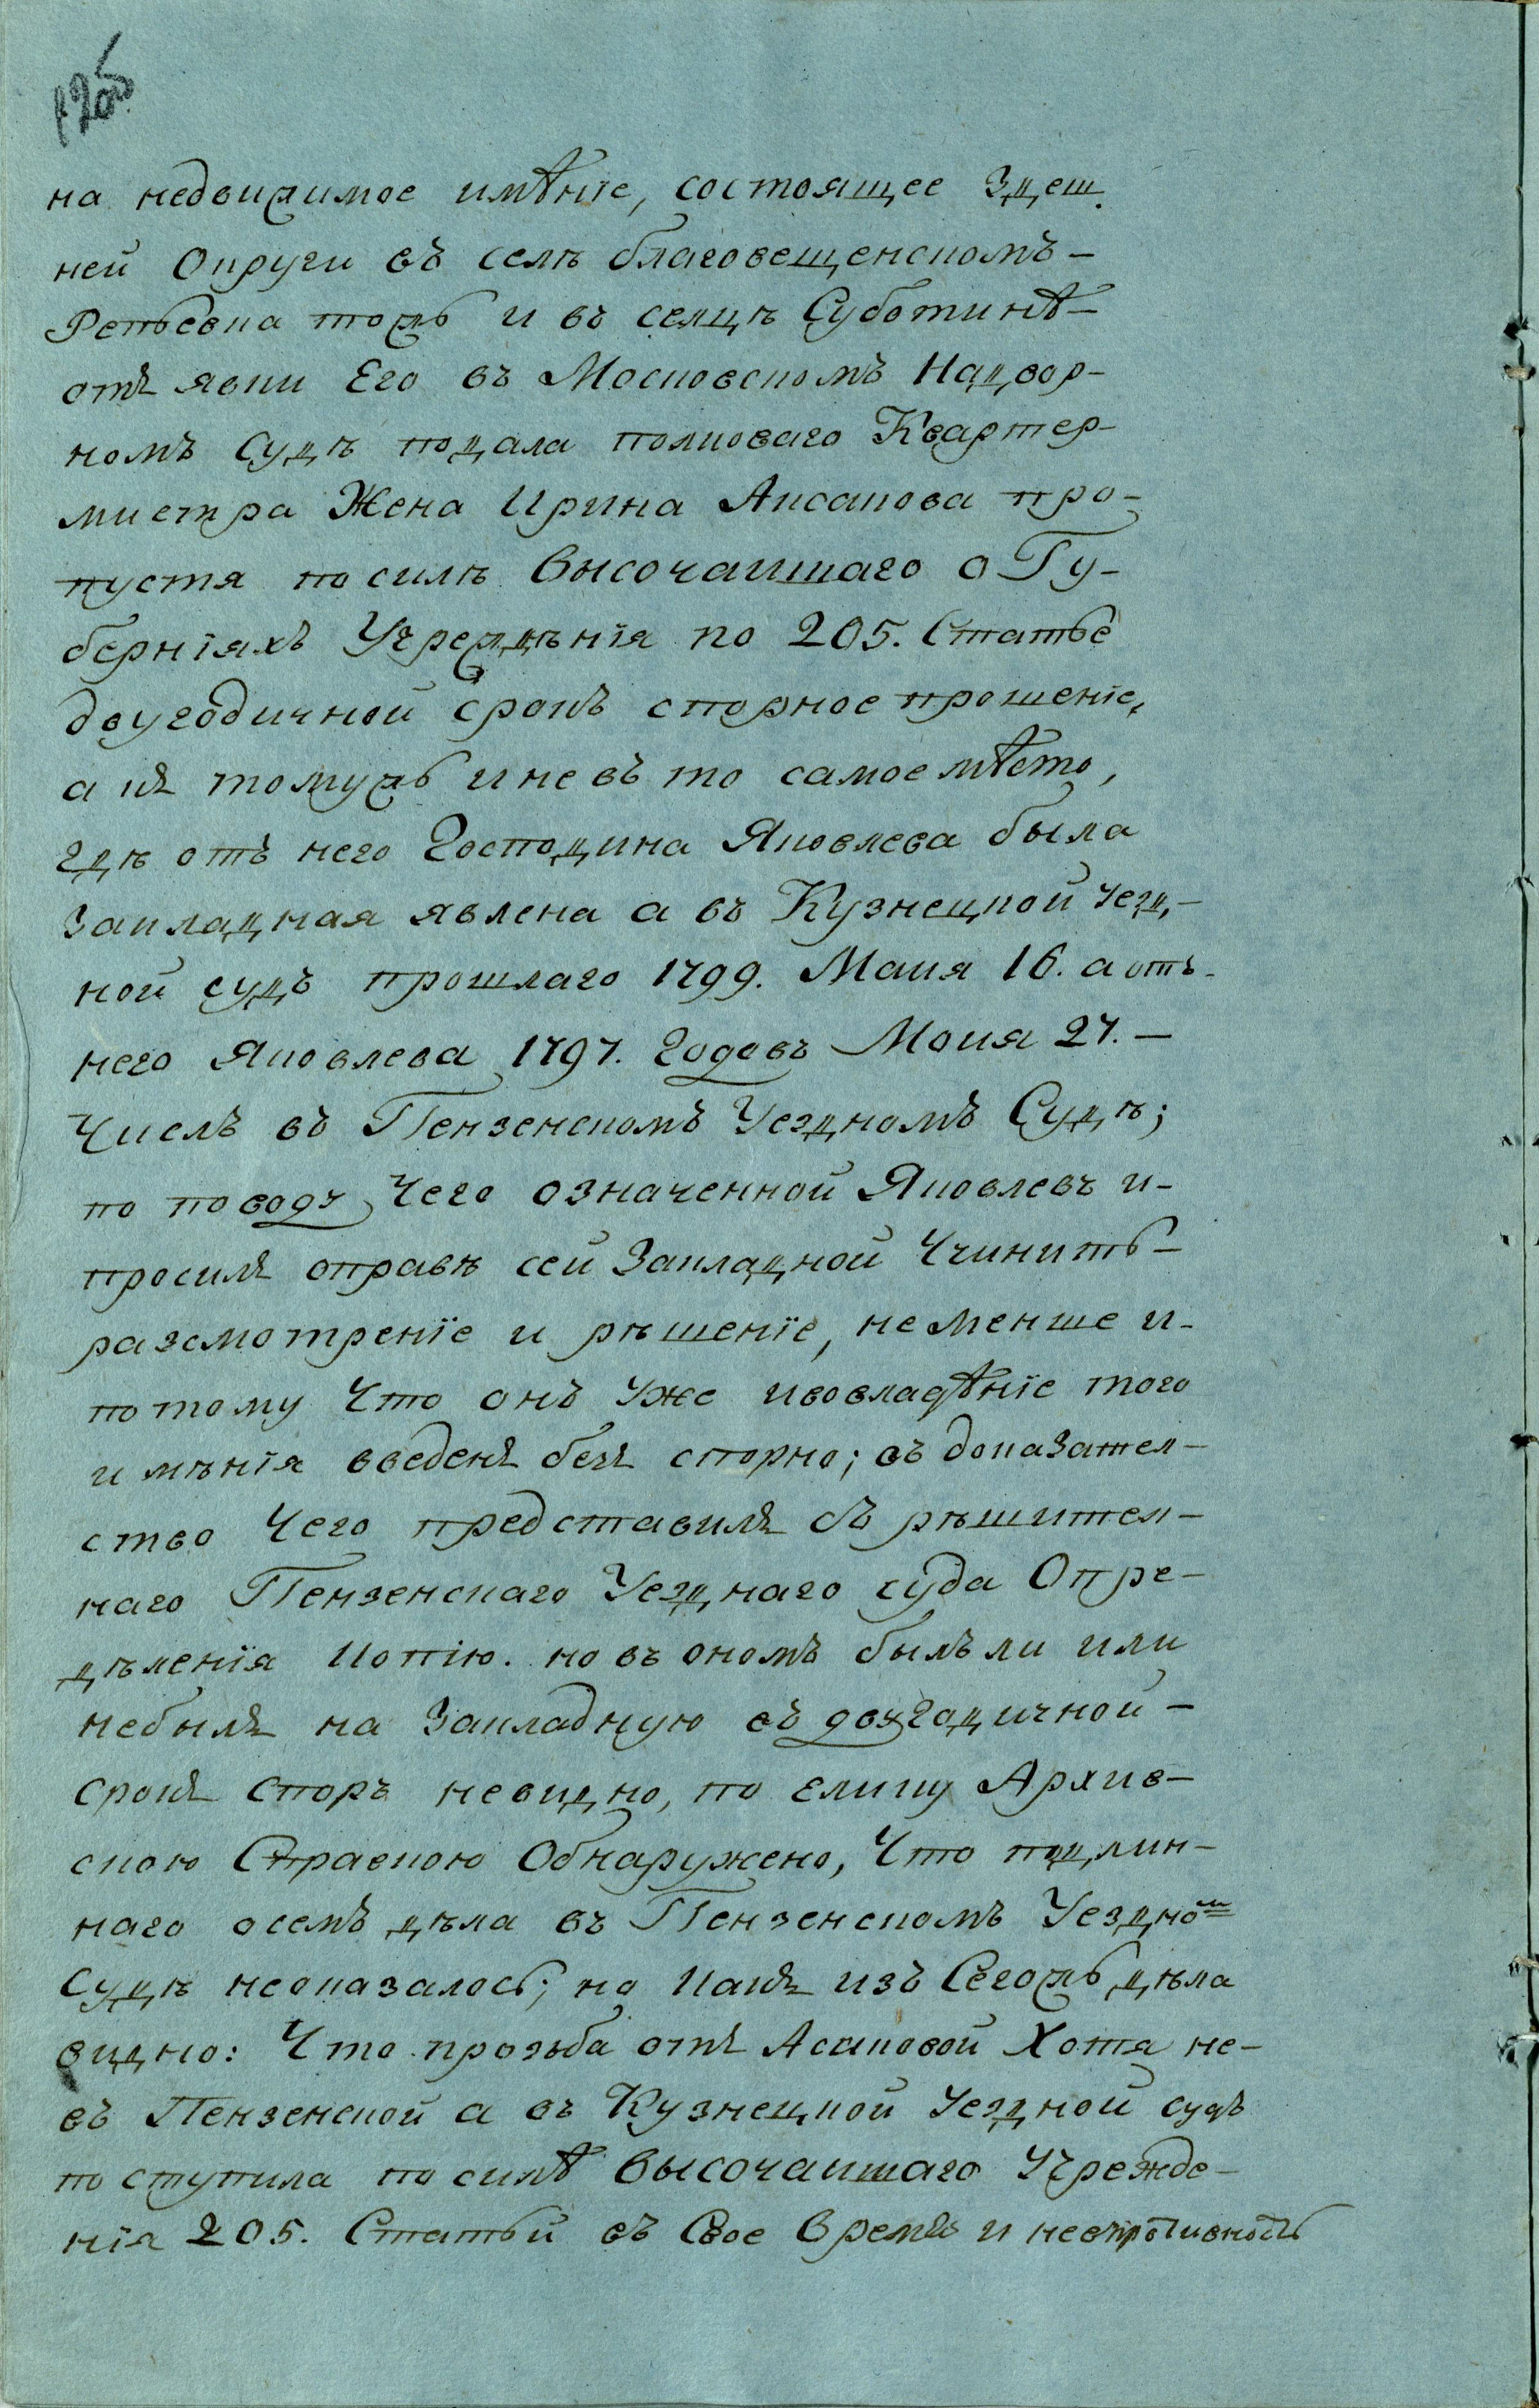 125
на недвижимое имѣнїе, состоящее здеш
ней округи въ селѣ благовещенскомъ-
Репьевка тожъ и въ селцѣ Суботинѣ-
отъ явки Его въ Московскомъ Надвор-
номъ Судѣ подала полковаго Квартер-
мистра Жена Ирина Аксакова про-
пустя по силѣ Высочаишаго о Гу-
бернїяхъ Учреждѣнїя по 205. Статье
двугодичной срокъ спорное прошенїе,
а къ томужъ и не въ то самое мѣсто,
гдѣ отъ него Господина Яковлева была
Закладная явлена а въ Кузнецкой уезд-
ной судъ прошлаго 1799. Маия 16. а отъ-
него Яковлева 1797. Годовъ Маия 27.-
Числъ въ Пензенскомъ Уездномъ Судѣ;
по поводу Чего означенной Яковлевъ и-
просилъ оправѣ сей Закладной Учинить-
разсмотренїе и рѣшенїе, не менше и-
потому Что онъ уже ивовладѣнїе того
имѣнїя введенъ безъ спорно; въ доказател-
ство Чего представилъ съ рѣшител-
наго Пензенскаго Уезднаго суда Опре-
дѣленїя Копїю. но въ ономъ былъ ли или
небылъ на Закладную въ двугодичной-
срокъ Споръ невидно, по елику Архив-
скою Справкою Обнаружено, Что подлин-
наго осемъ дѣла въ Пензенскомъ Уездном
Судѣ неоказалось; но Какъ изъ Сегожъ дѣла
видно: Что прозьба отъ Асаковой Хотя не-
въ Пензенской а въ Кузнецкой Уездной судъ
поступила по силѣ Высочаишаго Учрежде-
нїя 205. Статьи въ Свое Время и невпротивность